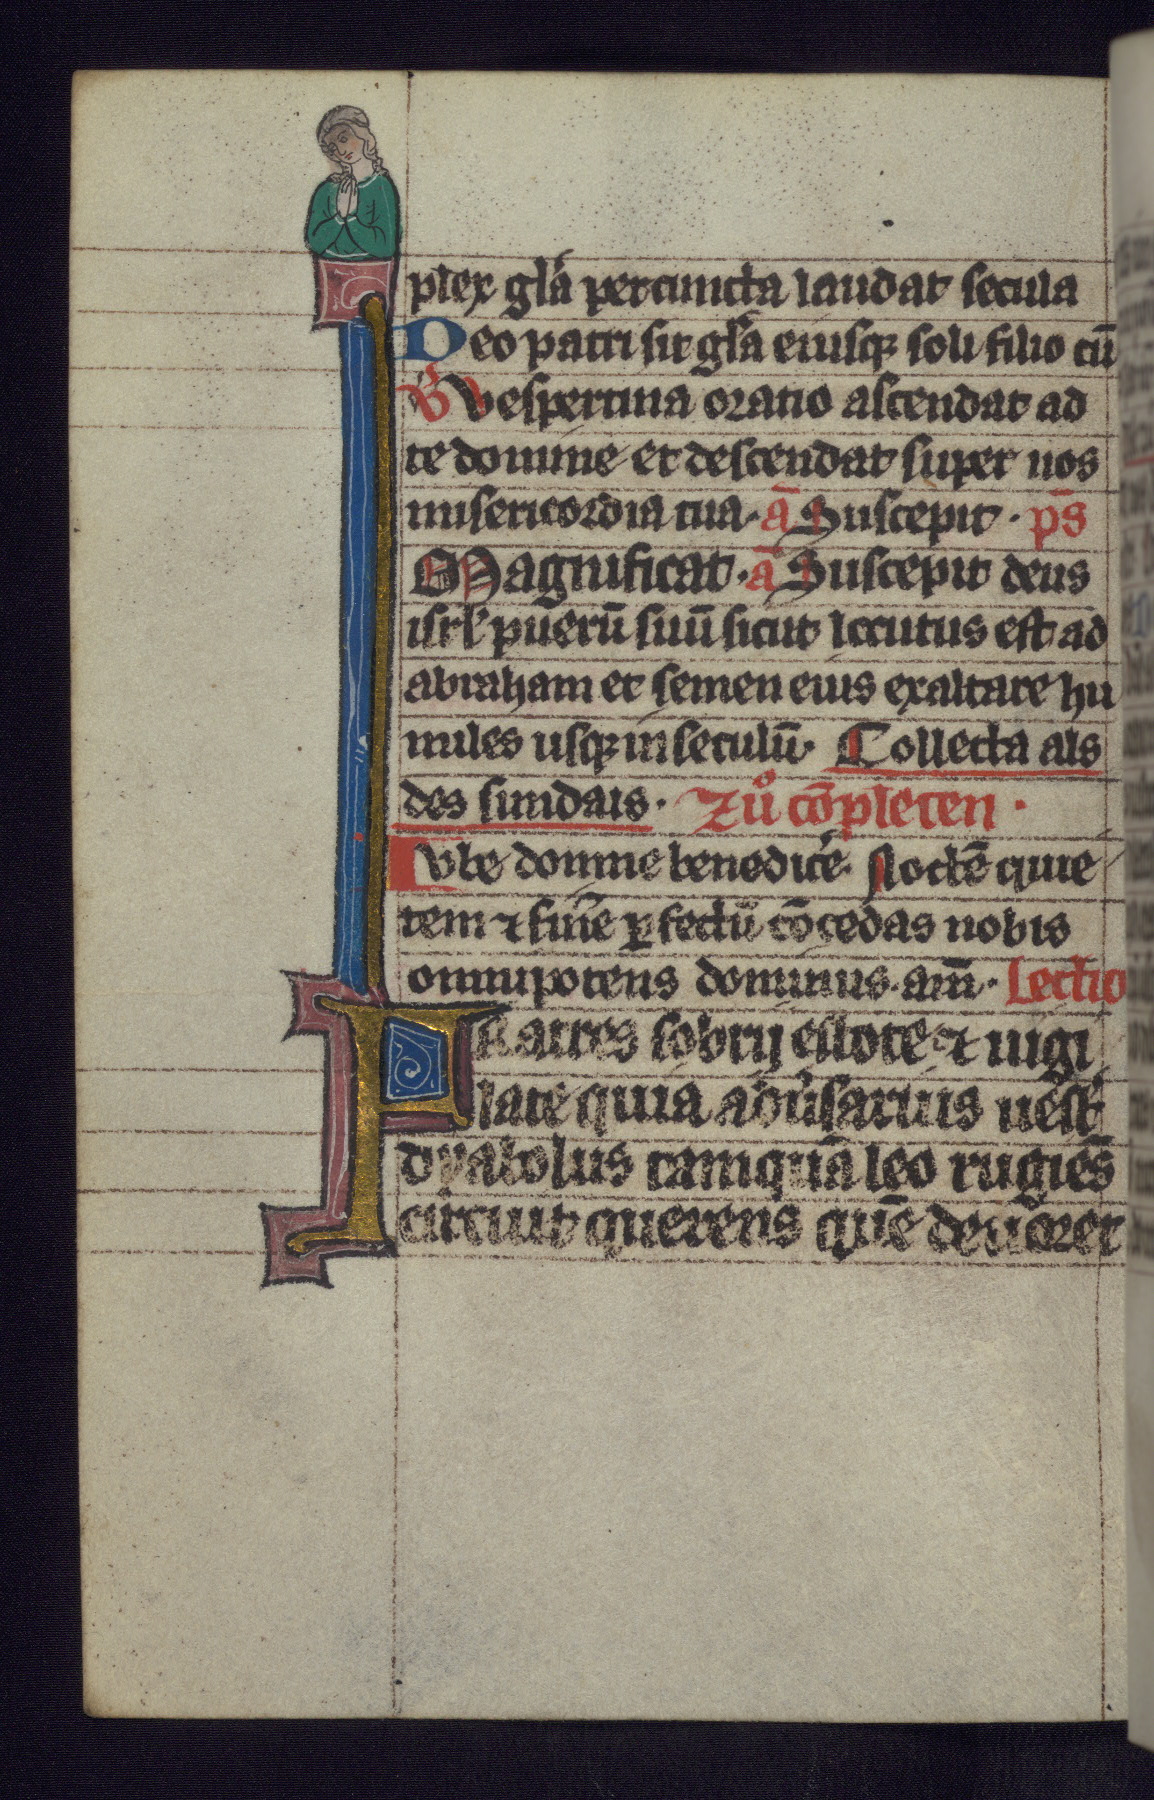 plex gl̄a per cuncta laudat secula
Deo patri sit gl̄a eiusq; soli filio cū
V̄ Vespertina oratio ascendat ad
te domine et descendat super nos
misericordia tua. ā Suscepit . pS̄
Magnificat . ā Suscepit deus
isrl̄ puerū suū sicut locutus est ad
abraham et semen eius exaltare hu
miles usq; in seculū. Collecta als
des sundais . Zů cōpleten .
Iube domne benedic̄e. Noctē quie
tem ⁊ finē ꝑfectū cōcedas nobis
omnipotens dominus. am̄. Lectio
Fratres sobrij estote ⁊ uigi
late quia adu̓sarius uest̄
dyabolus tamquā leo rugiēs
circuit querens quē deuoret